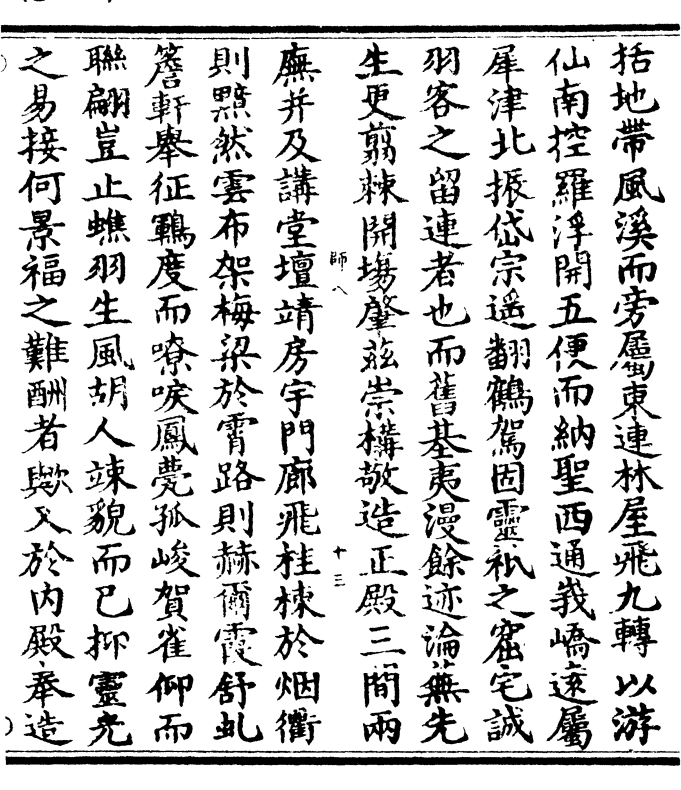 括地帶風溪而旁屬東連林屋飛九轉以游
仙南控羅浮開五便而納聖西通峩嶠遠屬
犀津北振岱宗遥翻鶴駕固靈祇之窟宅誠
羽客之留連者也而舊基夷漫餘迹淪蕪先
生更翦棘開場肇茲崇構敬造正殿三間兩
廡并及講堂壇靖房宇門廊飛桂棟於烟衢
則黕然雲布架梅梁於霄路則赫爾霞舒虬
簷軒舉征鶤度而嘹唳鳳甍孤峻賀雀仰而
聯翩豈止蟭羽生風胡人竦貌而已抑靈光
之易接何景福之難酬者歟又於内殿奉造
師八
十三